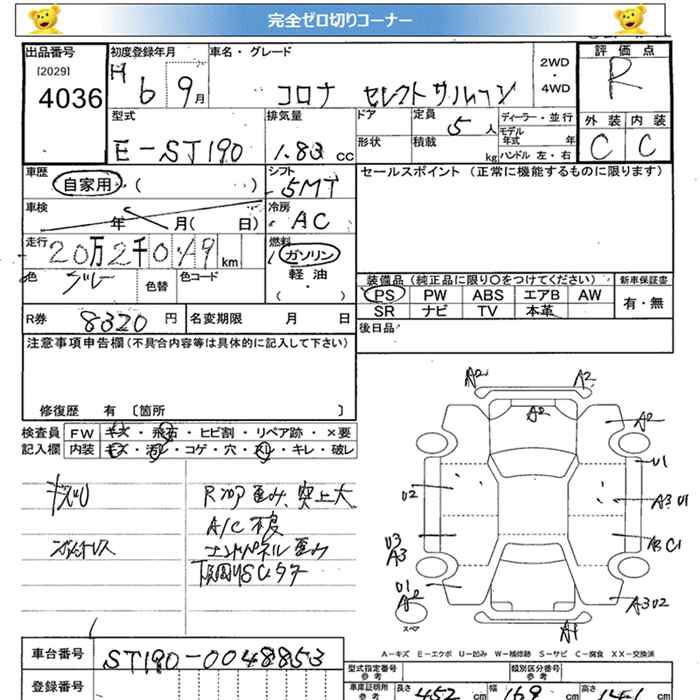 完全ゼロ切りコーナー
出品番号
[2029]
4036
初度登録年月
H 6 9月
車名・グレード
コロナ セレクトサルーン
2WD
・
4WD
評価点
R
外装 内装
C C
型式
E-ST190
排気量
1.83 cc
ドア
形状
定員
5 人
積載
kg
ディーラー・並行
モデル
年式 年
ハンドル 左・右
車歴
自家用・( )
シフト
5MT
セールスポイント (正常に機能するものに限ります)
車検
年 月( 日)
冷房
AC
走行
20万2千0 19 km
燃料
ガソリン
軽油
( ・ )
色
グレー
色替
色コード
装備品 (純正品に限り〇をつけてください)
PS PW ABS エアB AW
SR ナビ TV 本革
新車保証書
有・無
R券 8320 円
名変期限 月 日
後日品
注意事項申告欄(不具合内容等は具体的に記入して下さい)
修復歴 有 〔箇所 〕
検査員 FW キズ・飛石・ヒビ割・リペア跡・×要
記入欄 内装 キズ・汚レ・コゲ・穴・スレ・キレ・破レ
Rフロア歪み、突上大
A/C不良
エンドパネル歪み
下廻りSC、タナ
A2 A2
A2
A2
U1
U2
A3 U1
U3
A3
U1
A2
A3 U2
スペア
A1
A-キズ E-エクボ U-凹み W-補修跡 S-サビ C-腐食 XX-交換済
車台番号 ST190-0048853
登録番号
型式指定番号
参考
類別区分番号
参考
車庫証明用
参考
長さ 452 cm
幅 169 cm
高さ 141 cm